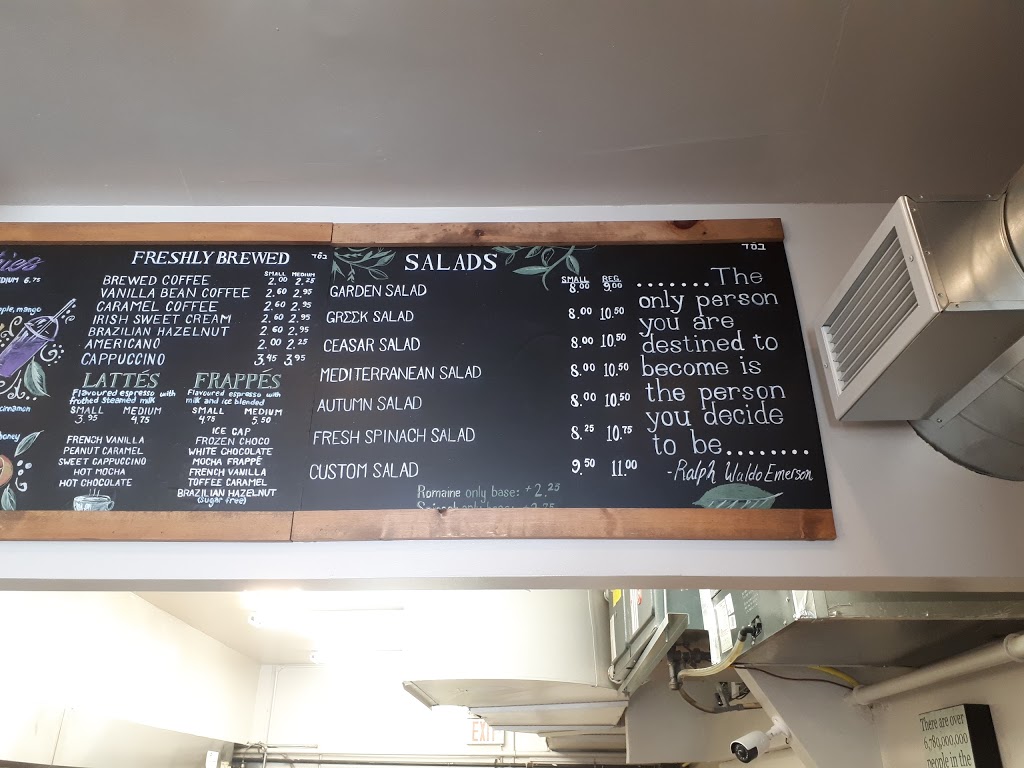 MEDIUM 6.75
mango
cinnamon
honey
FRESHLY BREWED
SMALL MEDIUM
BREWED COFFEE 2.00 2.25
VANILLA BEAN COFFEE 2.60 2.95
CARAMEL COFFEE 2.60 2.95
IRISH SWEET CREAM 2.60 2.95
BRAZILIAN HAZELNUT 2.60 2.95
AMERICANO 2.00 2.25
CAPPUCCINO 3.45 3.95
LATTÉS
Flavoured espresso with
frothed steamed milk
SMALL MEDIUM
3.95 4.75
FRENCH VANILLA
PEANUT CARAMEL
SWEET CAPPUCCINO
HOT MOCHA
HOT CHOCOLATE
FRAPPÉS
Flavoured espresso with
milk and ice blended
SMALL MEDIUM
4.75 5.50
ICE CAP
FROZEN CHOCO
WHITE CHOCOLATE
MOCHA FRAPPÉ
FRENCH VANILLA
TOFFEE CARAMEL
BRAZILIAN HAZELNUT
(sugar free)
SALADS
SMALL REG.
GARDEN SALAD 8.00 9.00
GRΣΣK SALAD 8.00 10.50
CEASAR SALAD 8.00 10.50
MEDITERRANEAN SALAD 8.00 10.50
AUTUMN SALAD 8.00 10.50
FRESH SPINACH SALAD 8.25 10.75
CUSTOM SALAD 9.50 11.00
Romaine only base: +2.25
........The
only person
you are
destined to
become is
the person
you decide
to be.........
-Ralph Waldo Emerson
EXIT
There are over
6,780,000,000
people in the